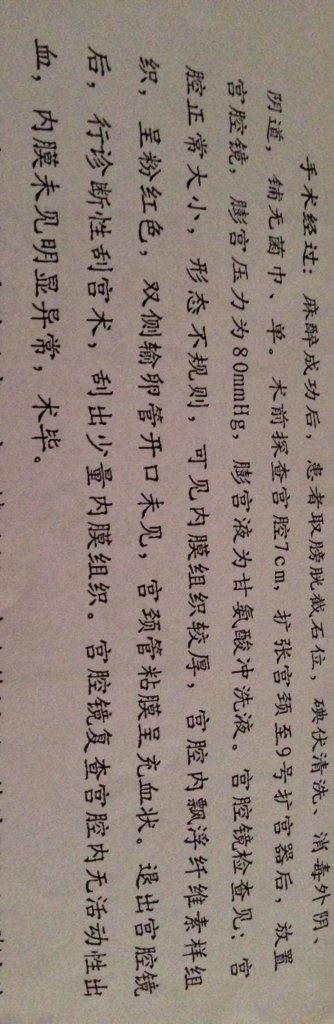 手术经过：麻醉成功后，患者取膀胱截石位，碘伏清洗、消毒外阴、
阴道，铺无菌巾、单。术前探查宫腔7cm，扩张宫颈至9号扩宫器后，放置
宫腔镜，膨宫压力为80mmHg，膨宫液为甘氨酸冲洗液。宫腔镜检查见：宫
腔正常大小，形态不规则，可见内膜组织较厚，宫腔内飘浮纤维素样组
织，呈粉红色，双侧输卵管开口未见，宫颈管粘膜呈充血状。退出宫腔镜
后，行诊断性刮宫术，刮出少量内膜组织。宫腔镜复查宫腔内无活动性出
血，内膜未见明显异常，术毕。